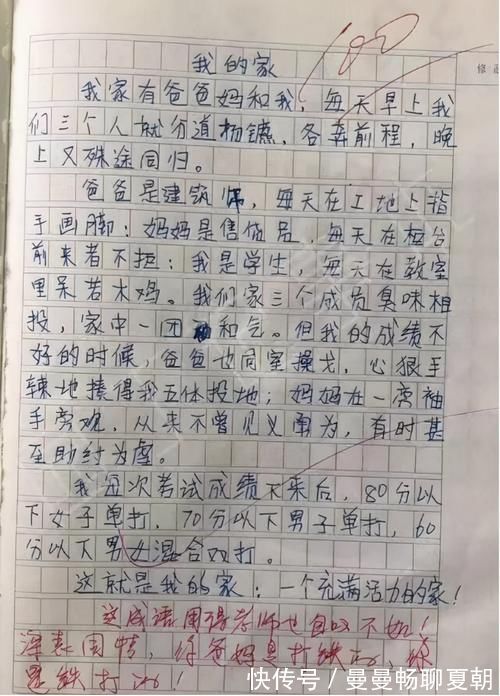 100
修 改
我的家
我家有爸爸妈和我，每天早上我
们三个人就分道杨镳，各奔前程，晚
上又殊途同归。
爸爸是建筑师，每天在工地上指
手画脚；妈妈是售货员，每天在柜台
前来者不拒；我是学生，每天在教室
里呆若木鸡。我们家三个成员臭味相
投，家中一团和气。但我的成绩不
好的时候，爸爸也同室操戈，心狠手
辣地揍得我五体投地；妈妈在一旁袖
手旁观，从来不曾见义勇为，有时甚
至助纣为虐。
我每次考试成绩下来后，80分以
下女子单打，70分以下男子单打，60
分以下男女混合双打。
这就是我的家：一个充满活力的家！
这成语用得老师也自叹不如！
深表同情，你爸妈是打铁的，你
是铁打的！
快传号／曼曼畅聊夏朝